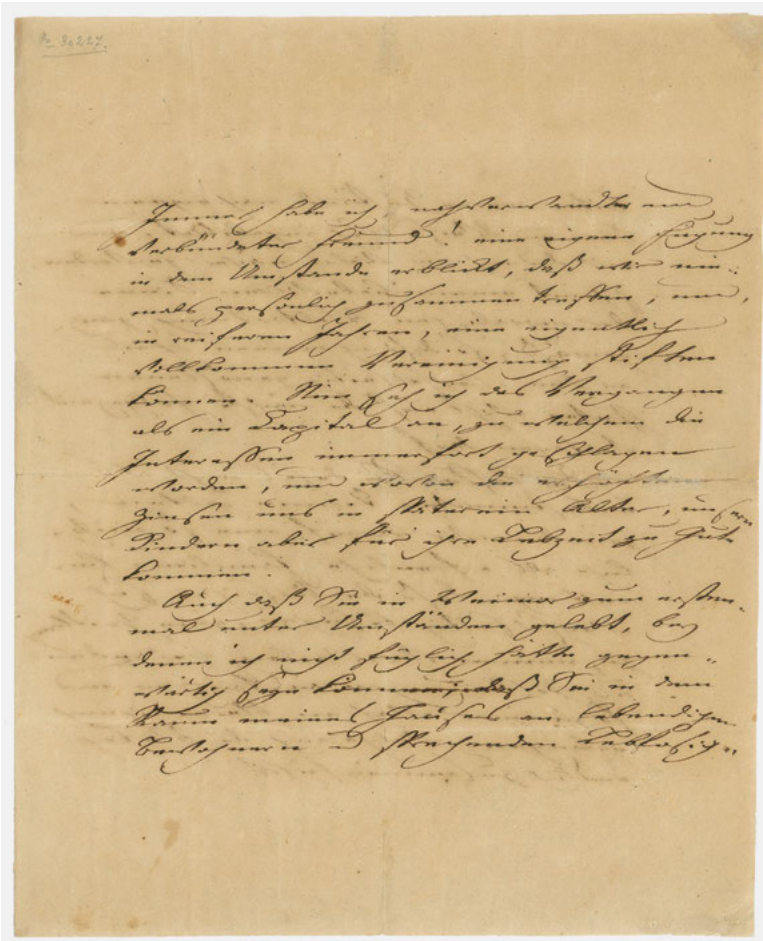 30227.
Immer habe ich, nahverwandter und
verbündeter Freund! eine eigene Fügung
in dem Umstande erblickt, daß wir nie-
mals persönlich zusammen treffen, und,
in reiferen Jahren, eine eigentlich
vollkommene Vereinigung stiften
können. Nun seh ich das Vergangene
als ein Capital an, zu welchem die
Interessen immerfort geschlagen
worden, und wovon die erhöhten
Zinsen uns in späterem Alter, unsern
Kindern aber für ihre Lebzeit zu Gute
kommen.
Auch daß Sie in Weimar zum ersten-
mal unter Umständen gelebt, bey
denen ich nicht füglich hätte gegen-
wärtig seyn können; daß Sie in dem
Raume meines Hauses an lebendigen
Bewohnern u sprechenden